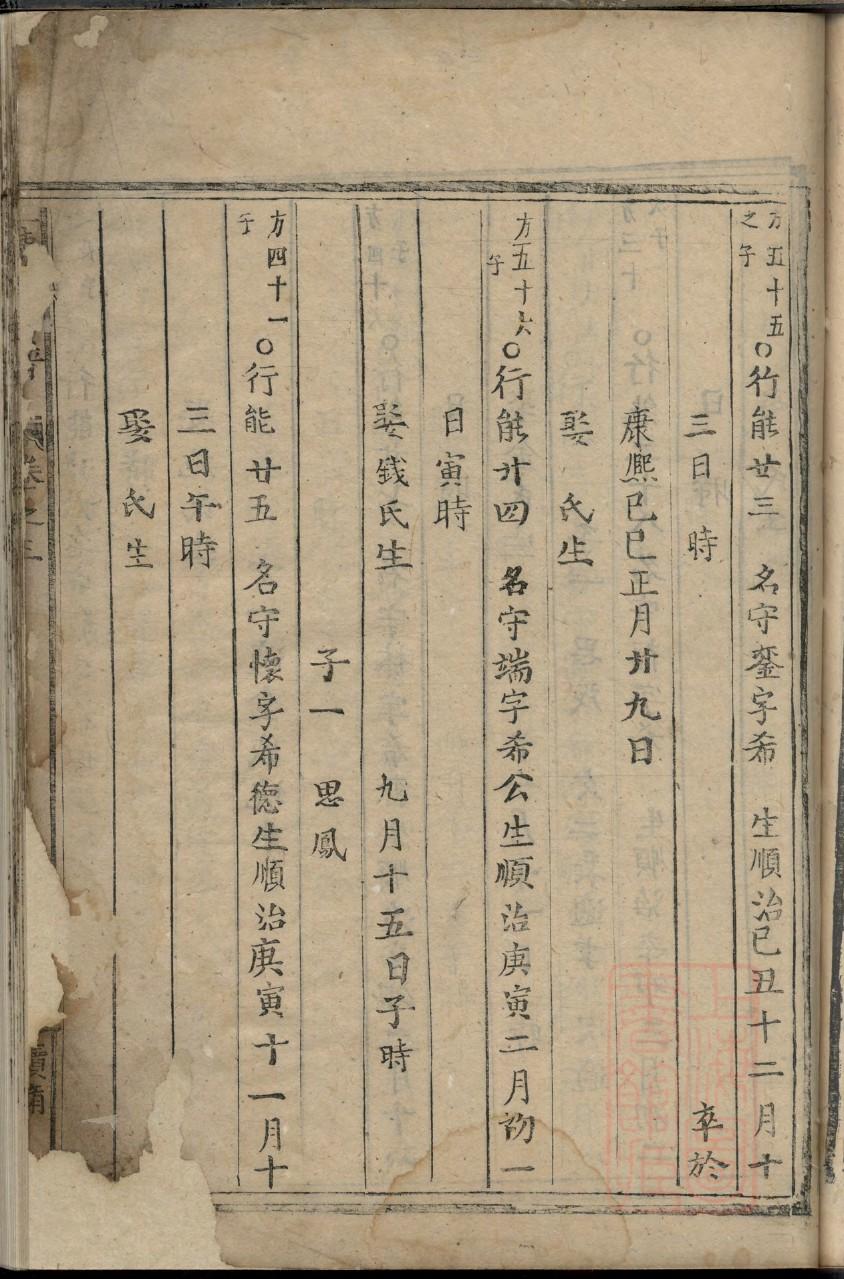 方五十五之子○行能廿三 名守鑾字希 生順治己丑十二月十
三日 時 卒於
康熙己巳正月廿九日
娶 氏生
方五十六子○行能廿四 名守端字希公生順治庚寅二月初一
日寅時
娶錢氏生 九月十五日子時
子一 思鳳
方四十一子○行能廿五 名守懷字希德生順治庚寅十一月十
三日午時
娶 氏生
卷之三